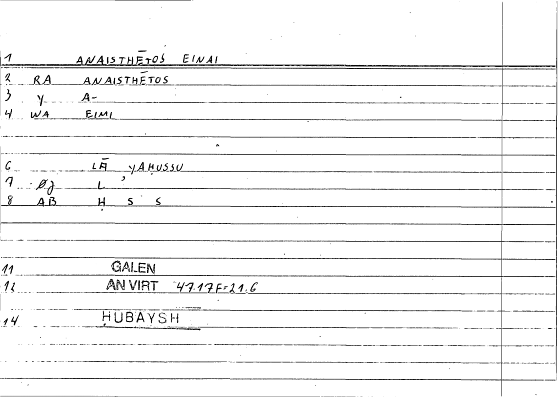 1 ANAISTHĒTOS EINAI
2 RA ANAISTHĒTOS
3 y A-
4 WA EIMI
6 LĀ yAḤUSSU
7 Øj L ʾ
8 AB Ḥ S S
11 GALEN
12 AN VIRT 47.17F=21.6
14 ḤUBAYSH